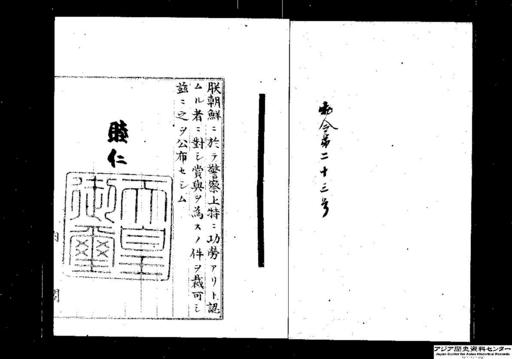 勅令第二十三号
朕朝鮮ニ於テ警察上特ニ功勞アリト認
ムル者ニ對シ賞與ヲ為スノ件ヲ裁可シ
茲ニ之ヲ公布セシム
睦仁
天皇
御璽
アジア歴史資料センター
Japan Center for Asian Historical Records